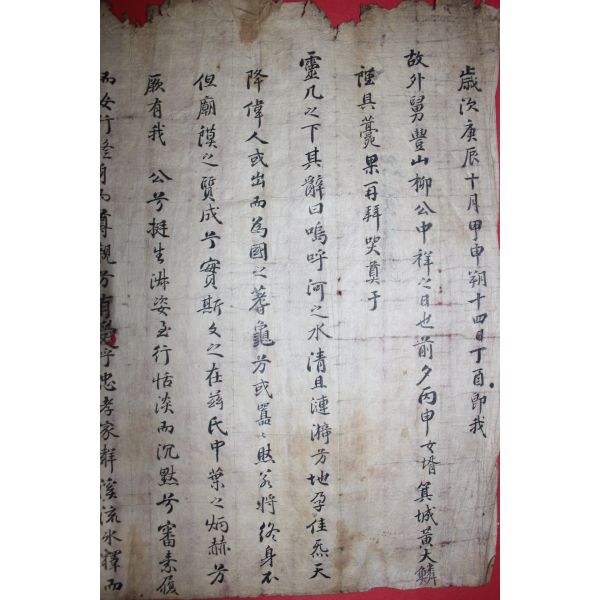 歲次庚辰十月甲申朔十四日丁酉即我
故外舅豐山柳公中祥之日也前夕丙申女壻箕城黃大鱗
謹具薧果再拜哭奠于
靈几之下其辭曰嗚呼河之水清且漣漪兮地孕佳炁天
降偉人或出而為國之蓍龜兮或囂〻然若將終身不
但廟謨之質成兮實斯文之在茲氏中葉之炳赫兮
厥有我 公兮挺生淋姿至行恬淡而沉默兮審素履
而 行 而 親兮有 乎忠孝家 溪流水 而